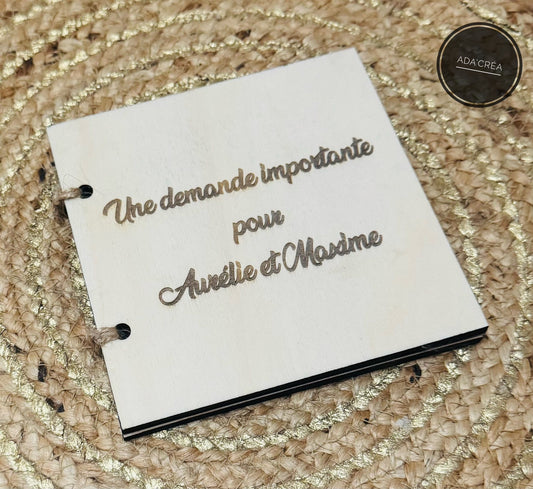 ADA'CRÉA
Une demande importante
pour
Aurélie et Maxime